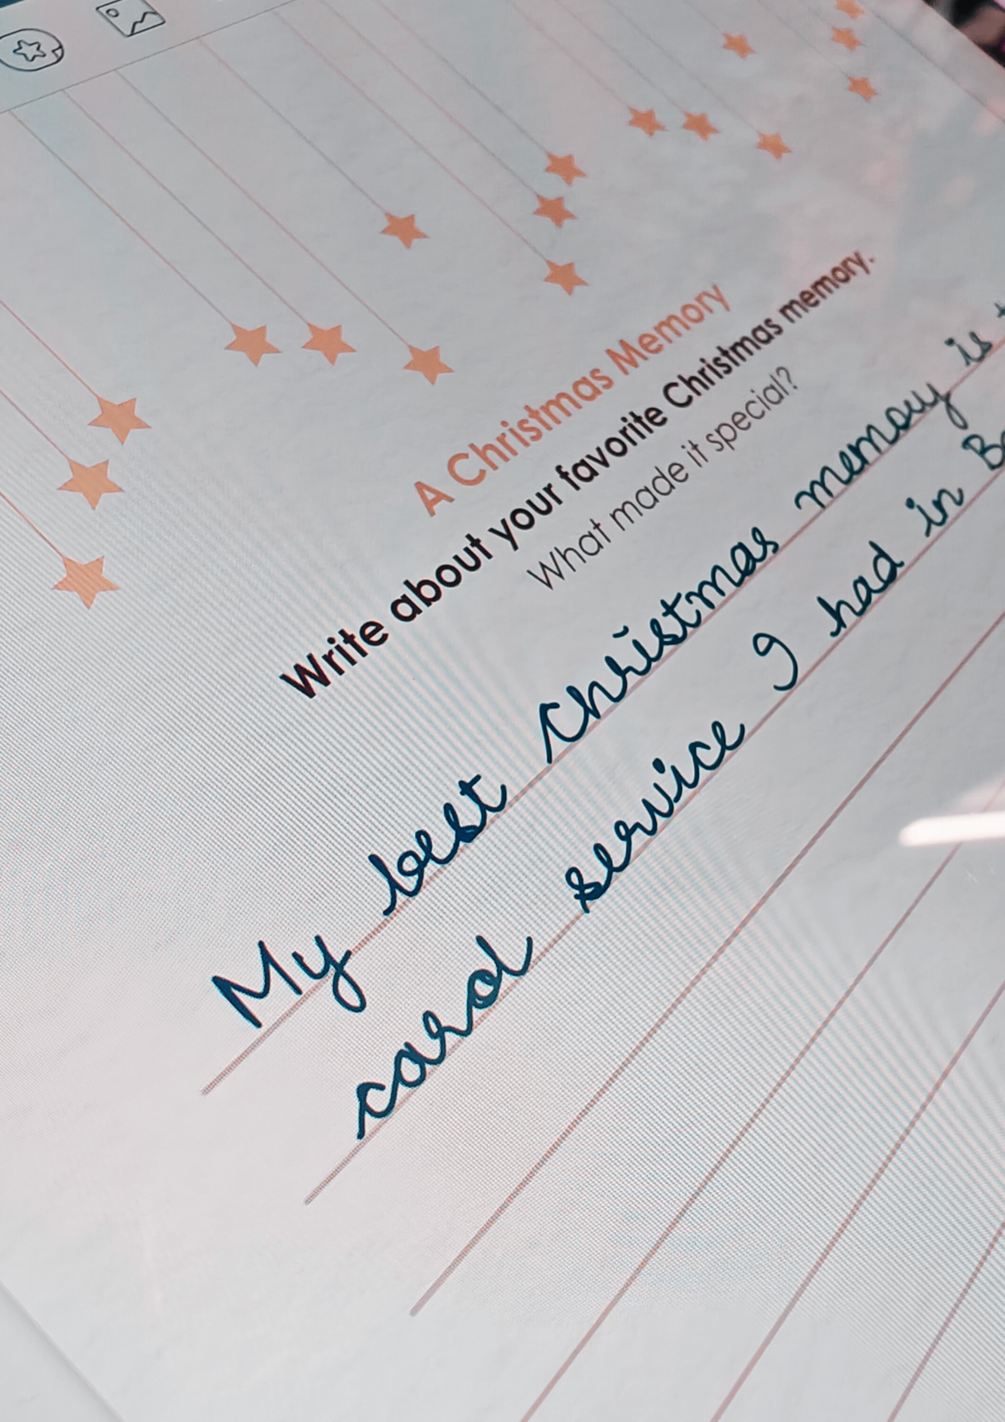 A Christmas Memory
Write about your favorite Christmas memory.
What made it special?
My best Christmas memory is
carol service I had in